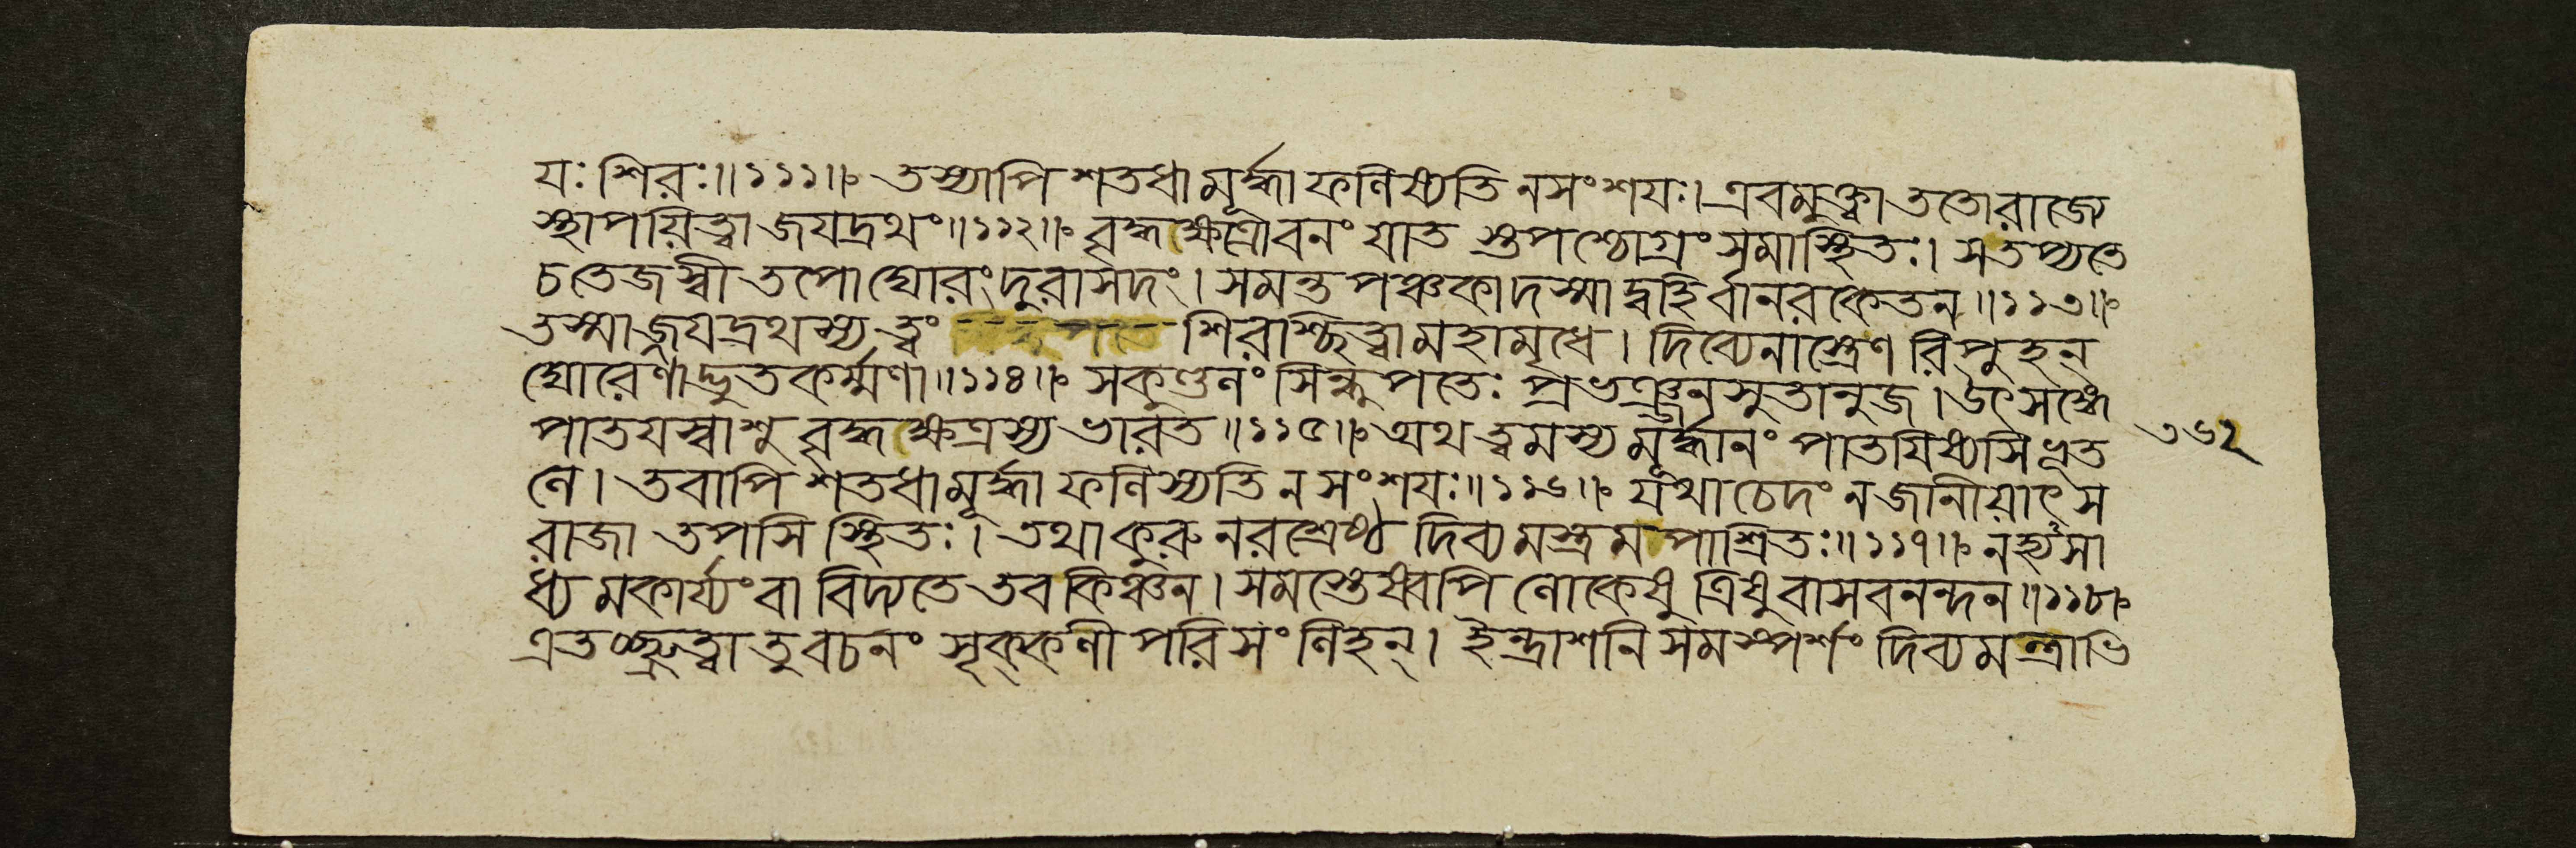 যঃ শিরঃ॥১১১॥ তস্যাপি শতধা মূর্দ্ধা ফলিষ্যতি ন সংশযঃ। এবমুক্ত্বা ততো রাজ্যে
স্থাপয়িত্বা জযদ্রথং॥১১২॥ বৃদ্ধক্ষত্রোবনং যাত স্তপশ্চোগ্রং সমাস্থিতঃ। স তপ্যতে
চ তেজস্বী তপো ঘোরং দুরাসদং। সমন্তপঞ্চকাদস্মাদ্বহির্বানরকেতন॥১১৩॥
তস্মাজ্জযদ্রথস্য ত্বং শিরাশ্ছিত্ত্বা মহামৃধে। দিব্যেনাস্ত্রেণ রিপুহন্
ঘোরেণাদ্ভুতকর্ম্মণা॥১১৪॥ সকুণ্ডলং সিন্ধুপতেঃ প্রভঞ্জনসুতানুজ। উৎসঙ্গে
পাতযস্বাশু বৃদ্ধক্ষত্রস্য ভারত॥১১৫॥ অথ ত্বমস্য মূর্দ্ধানং পাতযিষ্যসি ভূত
লে। তবাপি শতধা মূর্দ্ধা ফলিষ্যতি ন সংশযঃ॥১১৬॥ যথা চেদং ন জানীয়াৎ স
রাজা তপসি স্থিতঃ। তথা কুরু নরশ্রেষ্ঠ দিব্যমস্ত্রমপাশ্রিতঃ॥১১৭॥ নহ্যসা
ধ্যমকার্য্যং বা বিদ্যতে তব কিঞ্চন। সমস্তেষ্বপি লোকেষু ত্রিষু বাসবনন্দন॥১১৮॥
এতচ্ছ্রুত্বা তু বচনং সৃক্কণী পরিসংলিহন্। ইন্দ্রাশনিসমস্পর্শং দিব্যমন্ত্রাভি
৩৬২